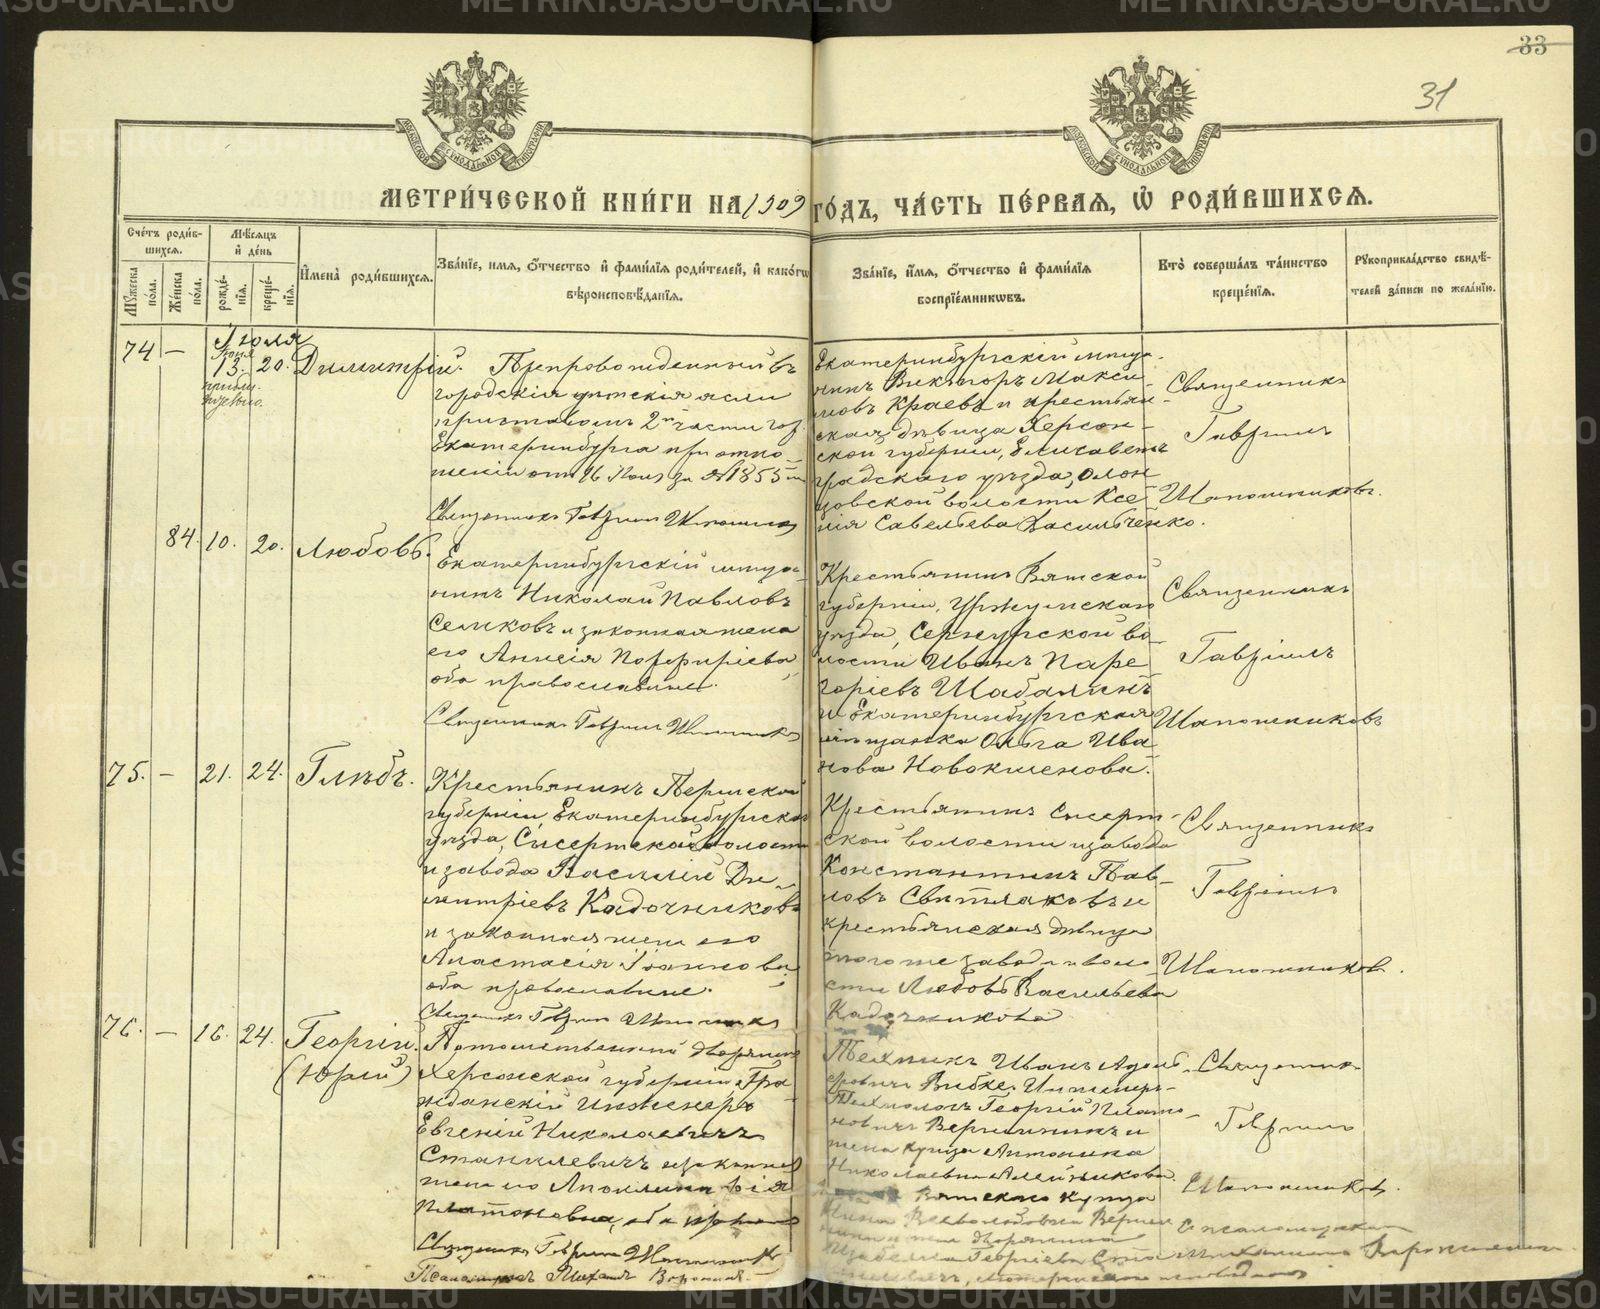 METRIKI.GASO-URAL.RU
33
31
МОСКОВСКОЙ СѴНОДАЛЬНОЙ ТИПОГРАФІИ
МОСКОВСКОЙ СѴНОДАЛЬНОЙ ТИПОГРАФІИ
МЕТРИ́ЧЕСКОЙ КНИ́ГИ НА 1909 ГО́ДЪ, ЧА́СТЬ ПЕ́РВАЯ, Ѡ҆ РОДИ́ВШИХСЯ.
Сче́тъ роди́в-
шихся.
Мѣ́сяцъ
и҆ де́нь
Мꙋ́жеска по́ла.
Же́нска по́ла.
рожде́-нїѧ.
креще́-нїѧ.
И҆мена̀ роди́вшихся.
Зва́нїе, и҆́мя, о҆́тчество и҆ фами́лїя роди́телей, и҆ како́гѡ
вѣроисповѣ́данїя.
Зва́нїе, и҆́мя, о҆́тчество и҆ фами́лїя
воспрїе́мникѡвъ.
Кто̀ соверша́лъ та́инство
креще́нїя.
Рꙋкоприкла́дство свидѣ́-
телей за́писи по жела́нїю.
Іюля
74 — 13. 20. Димитрій.
Препровожденный въ
городскія дѣтскія ясли
приставомъ 2й части гор.
Екатеринбурга при отно-
шеніи от 16 Іюля за № 1855
Священникъ Гавріилъ Шапошников
Екатеринбургскій мѣща-
нинъ Викторъ Макси-
мовъ Краевъ и крестьян-
ская дѣвица Херсон-
ской губерніи, Елисавет-
градскаго уѣзда,
волости Ксе-
нія Савельева Васильченко.
Священникъ
Гавріилъ
Шапошниковъ.
84. 10. 20. Любовь.
Екатеринбургскій мѣща-
нинъ Николай Павловъ
Селковъ и законная жена
его Анисія Порфиріева,
оба православные.
Священникъ Гавріилъ Шапошников
Крестьянинъ Вятской
губерніи, Уржумскаго
уѣзда, Сернурской во-
лости Иванъ Паре-
горіевъ Шабалинъ
и Екатеринбургская
мѣщанка Ольга Ива-
нова Новокшенова.
Священникъ
Гавріилъ
Шапошниковъ
75. — 21. 24. Глѣбъ.
Крестьянинъ Пермской
губерніи, Екатеринбургскаго
уѣзда, Сысертской волости
и завода Василій Ди-
митріевъ Кадочниковъ
и законная жена его
Анастасія Іоаннова,
оба православные.
Священникъ Гавріилъ Шапошников
Крестьянинъ Сысерт-
ской волости и завода
Константинъ Пав-
ловъ Свитляковъ и
крестьянская дѣвица
того же завода и воло-
сти Любовь Васильева
Кадочникова
Священникъ
Гавріилъ
Шапошников.
76. — 16. 24. Георгій.
(Юрій)
Потомственный дворянинъ
Херсонской губерніи, Гра-
жданскій инженеръ
Евгеній Николаевичъ
Станкевичъ и законная
жена его Аполлинарія
Платоновна, оба православ
Священникъ Гавріилъ Шапошников
Псаломщикъ Михаилъ
Техникъ Иванъ
Вибке. Инженеръ-
Технологъ Георгій Плато-
новичъ Вершининъ и
жена купца Антонина
Николаевна
Вятскаго купца
Священник
Гавріилъ
Шапошников.